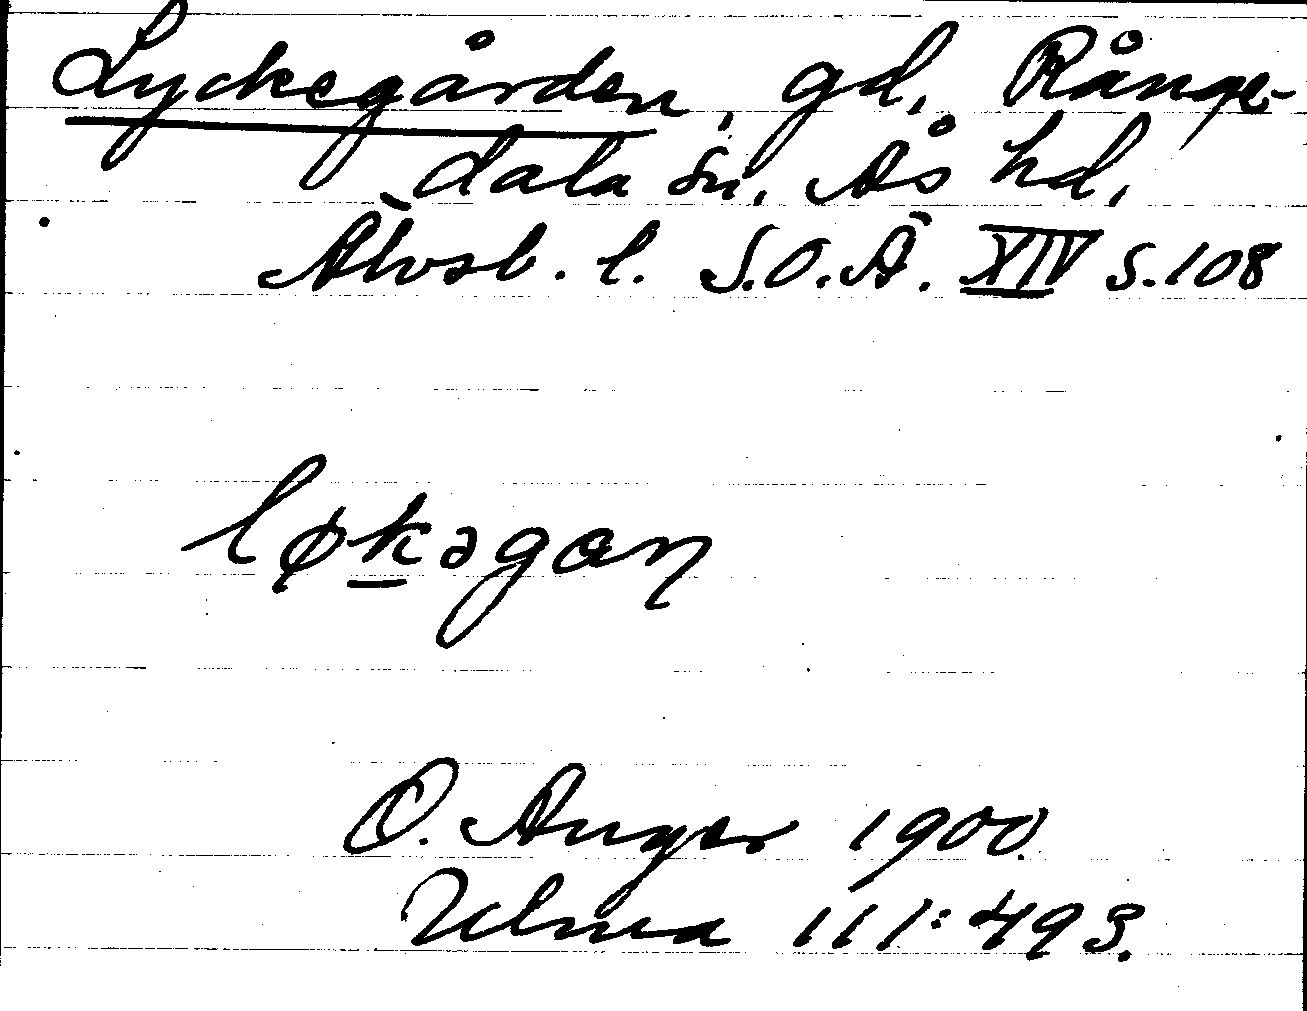 Lyckegården, gd, Rånge-
dala sn. Ås hd,
Älvsb. l. S.O.Ä. XIV s.108
løkəgaɳ
O. Anger 1900.
Ulma 111:493.